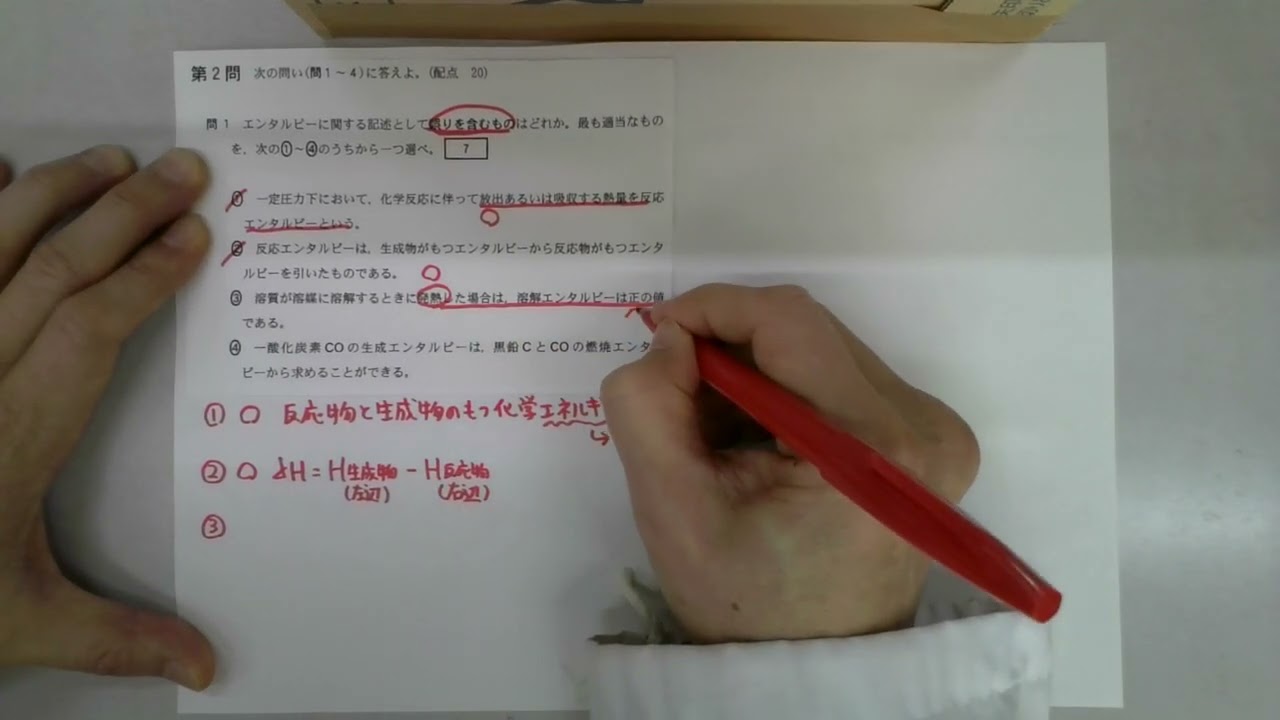 第2問 次の問い(問1～4)に答えよ。(配点 20)
問1 エンタルピーに関する記述として誤りを含むものはどれか。最も適当なもの
を、次の①～④のうちから一つ選べ。 7
① 一定圧力下において、化学反応に伴って放出あるいは吸収する熱量を反応
エンタルピーという。
② 反応エンタルピーは、生成物がもつエンタルピーから反応物がもつエンタ
ルピーを引いたものである。
③ 溶質が溶媒に溶解するときに発熱した場合は、溶解エンタルピーは正の値
である。
④ 一酸化炭素COの生成エンタルピーは、黒鉛CとCOの燃焼エンタ
ピーから求めることができる。
① ○ 反応物と生成物のもつ化学エネルギ
② ○ ΔH=H生成物-H反応物
(左辺) (右辺)
③